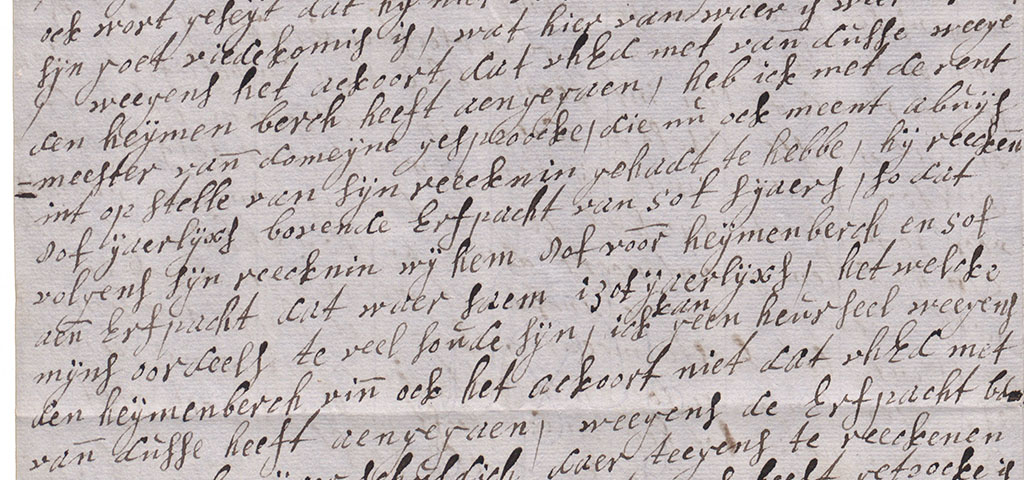 ock wort geseyt dat hy niet
sijn goet riedekomis is, wat hier van waer is weet
weegens het ackoort, dat uhEd met vañ dusse weege
den heijmen berch heeft aengegaen, heb ick met de rent
=meester vañ domeijne gesproocke, die nu ock meent abuijs
int op stelle van sijn reecknin gehadt te hebbe, hij reeckeñt
80f ijaerlijxs bovende Erfpacht van 50f sijaers, so dat
volgens sijn reecknin wij hem 80f voor heijmenberch en 50f
aeñ Erfpacht dat waer saem 130f ijaerlijxs, het welcke
mijns oordeels te veel soude sijn, ick kan geen heurseel weegens
den heijmenberch viñ ock het ackoort niet dat uhEd met
vañ dusse heeft aengegaen, weegens de Erfpacht
daer teegens te reeckenen
heeft getoocke is